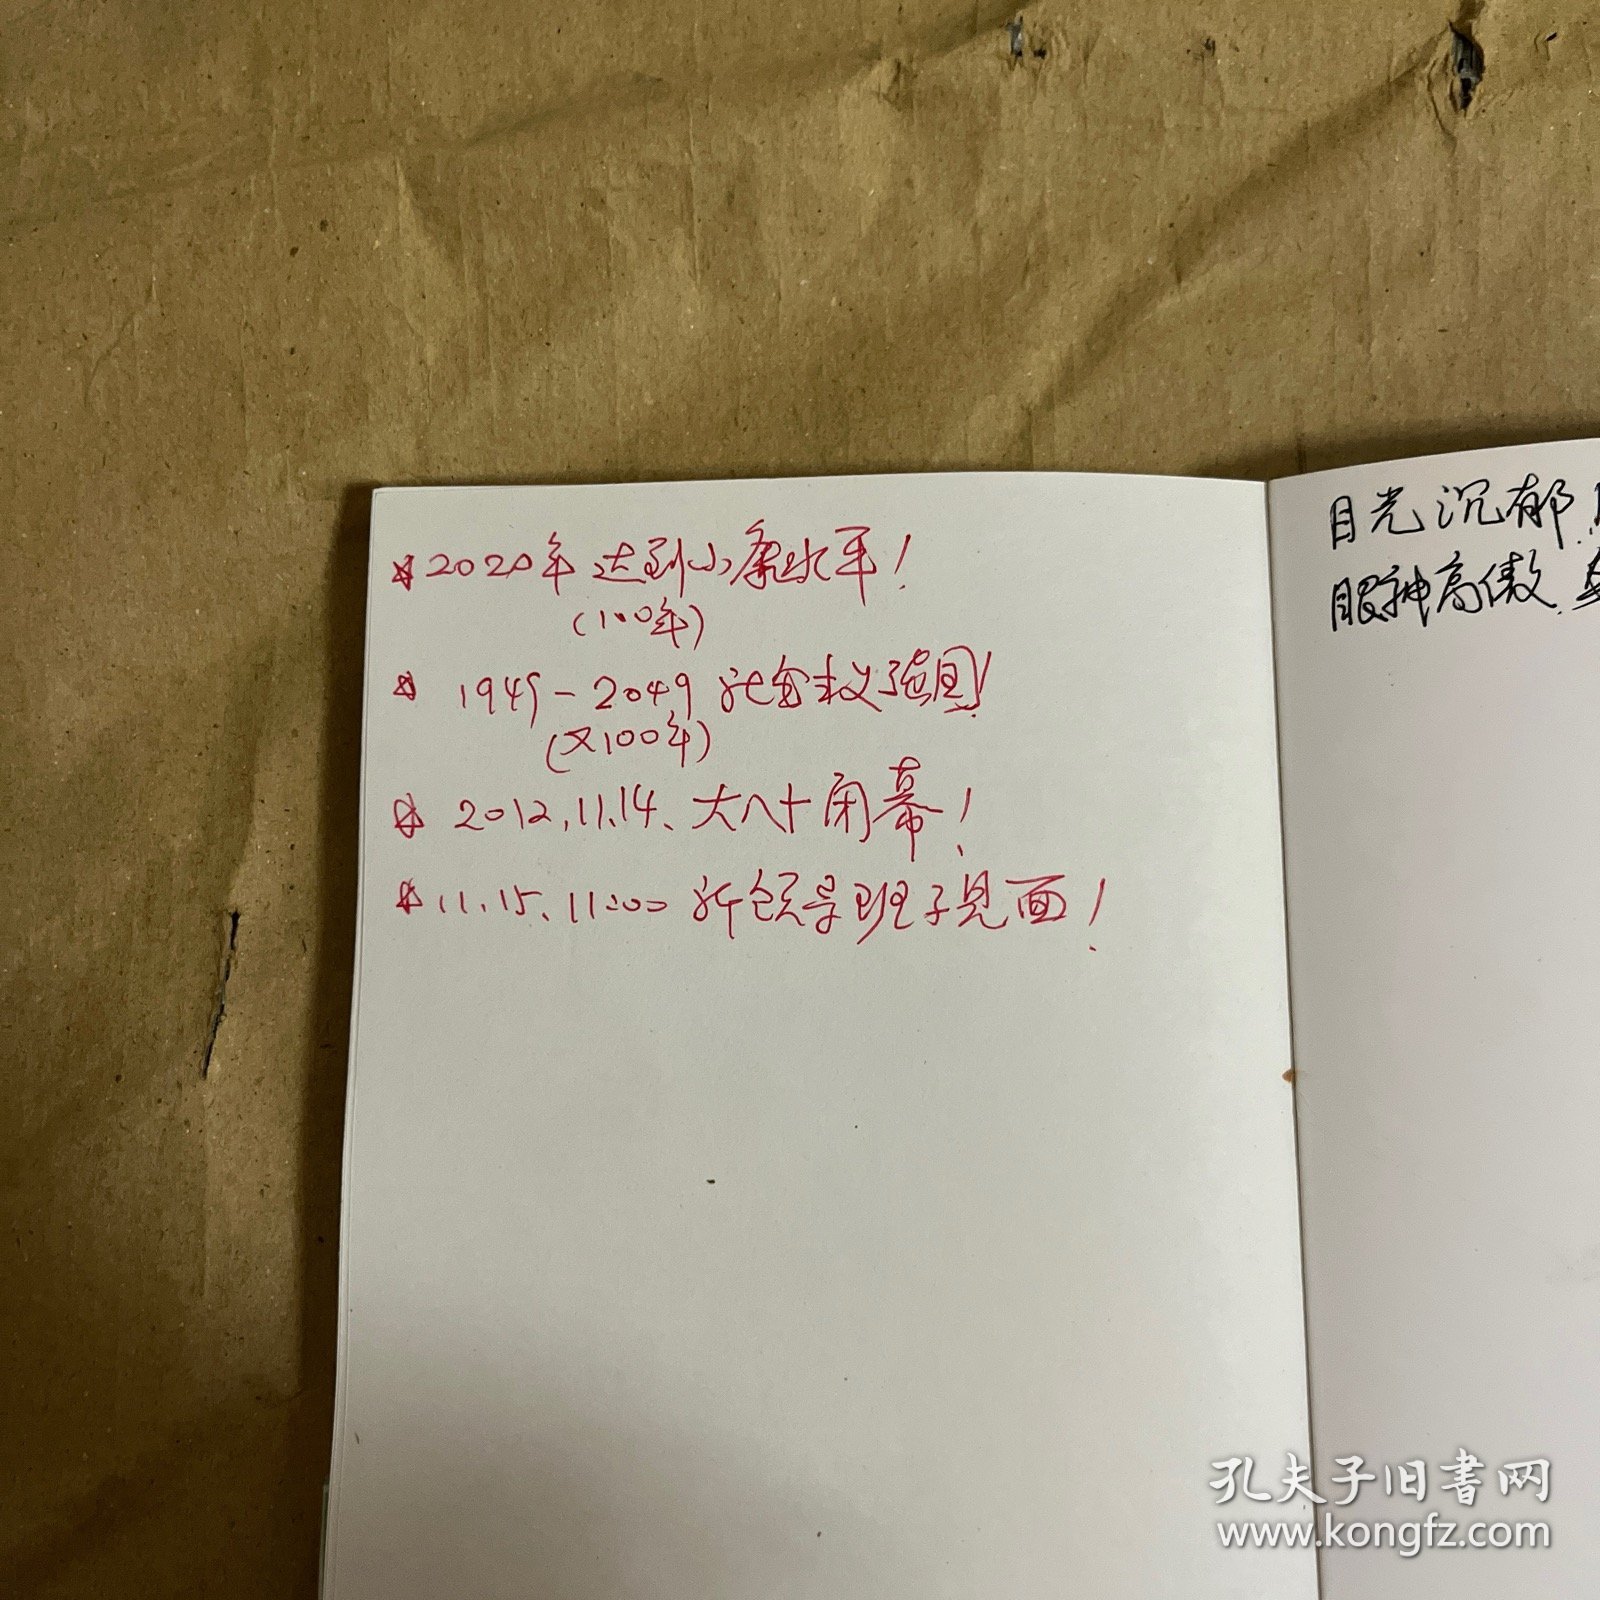 ☆2020年达到小康水平！
(100年)
☆ 1949-2049 社会主义强国！
(又100年)
☆ 2012.11.14、大八十闭幕！
☆ 11.15、11:00 新领导班子见面！
目光沉郁
眼神高傲
孔夫子旧书网
www.kongfz.com